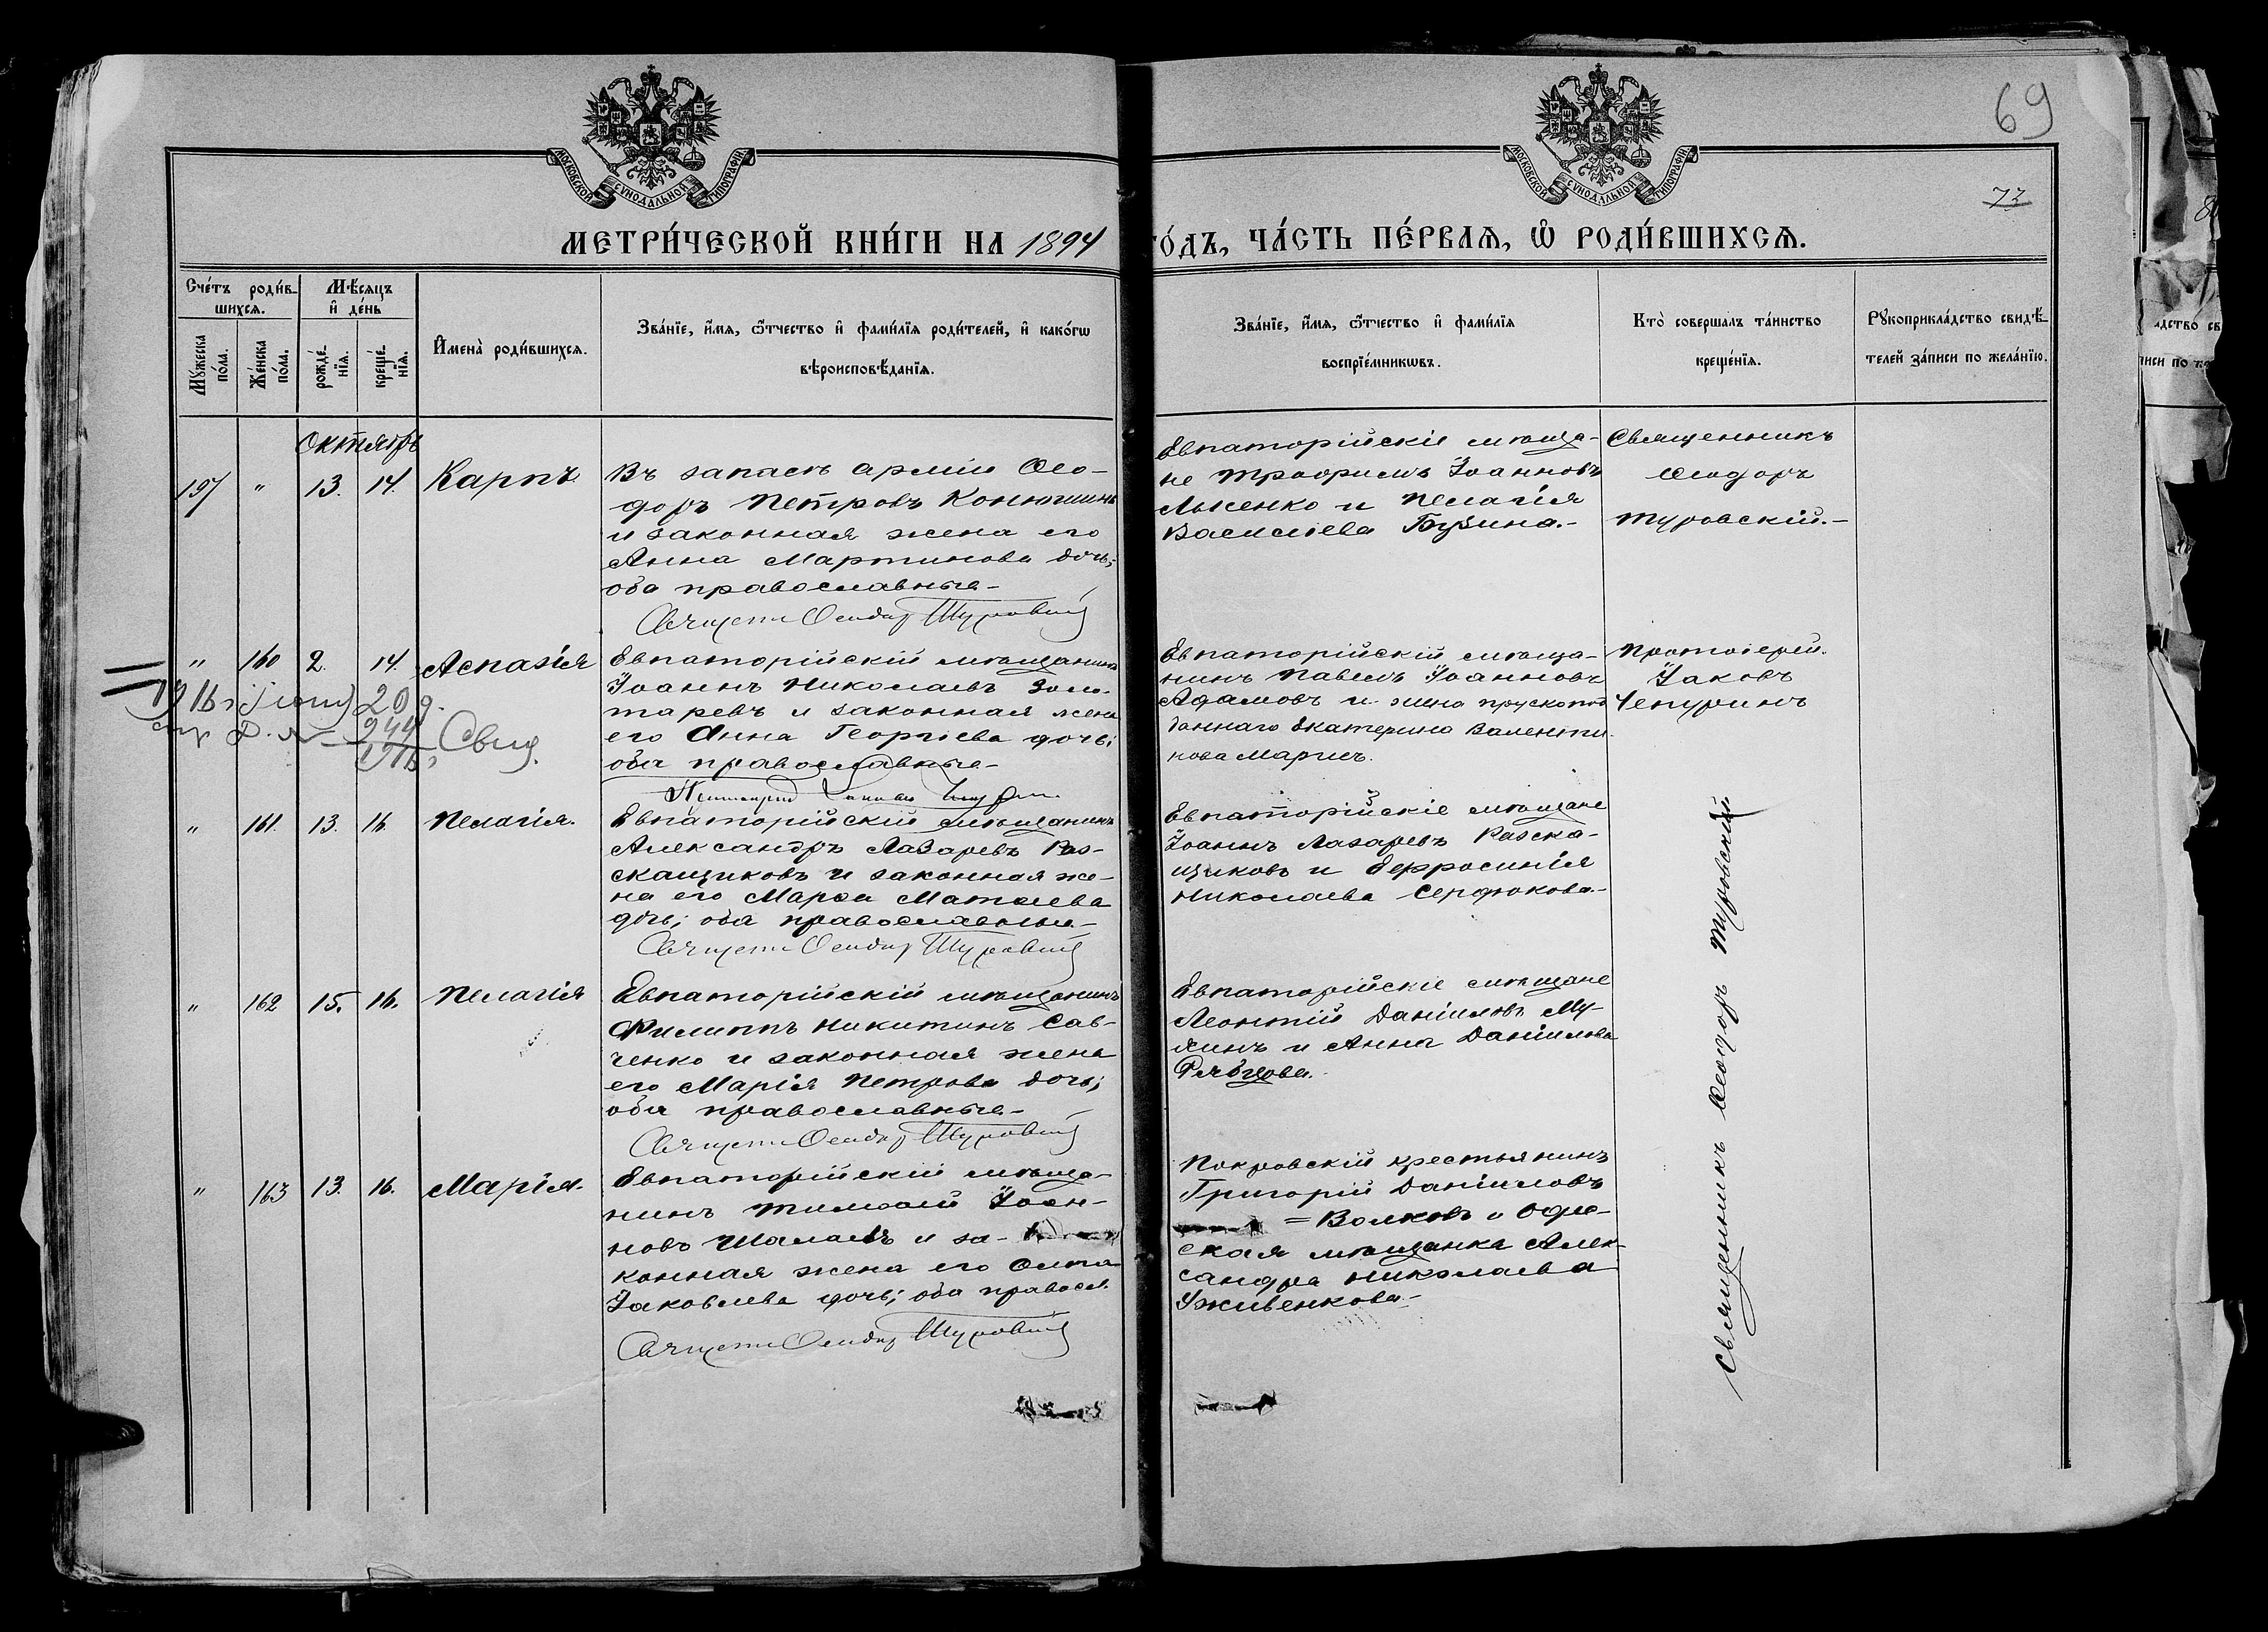 69
73
МОСКОВСКОЙ СУНОДАЛЬНОЙ ТИПОГРАФІИ
МОСКОВСКОЙ СУНОДАЛЬНОЙ ТИПОГРАФІИ
МЕТРИ́ЧЕСКОЙ КНИ́ГИ НА 1894
ГО́ДЪ, ЧА́СТЬ ПЕ́РВАѦ, Ѡ РОДИ́ВШИХСѦ.
Сче́тъ роди́в-
шихсѧ.
Мꙋ́жеска по́ла.
Же́нска по́ла.
Мѣ́сѧцъ
и де́нь
рожде́-
нїѧ.
креще́-
нїѧ.
Имена̀ роди́вшихсѧ.
Зва́нїе, и́мѧ, ѻ́тчество и фами́лїѧ роди́телей, и како́гѡ
вѣроисповѣ́данїѧ.
Зва́нїе, и́мѧ, ѻ́тчество и фами́лїѧ
воспрїе́мникѡвъ.
Кто̀ соверша́лъ та́инство
креще́нїѧ.
Рꙋкоприкла́дство свидѣ́-
телей за́писи по жела́нїю.
Октябрь
197 " 13. 14. Карпъ
Въ запасѣ арміи Ѳео-
доръ Петровъ Конюшинъ
и законная жена его
Анна Мартинова дочь;
оба православные-
Священ. Ѳеодор Туровскій
Евпаторійскіе мѣща-
не Трофимъ Іоанновъ
Лысенко и Пелагія
Василіева Бузина.-
Священникъ
Ѳеодоръ
Туровскій.-
" 160 2. 14. Аспазія
Евпаторійскій мѣщанинъ
Іоаннъ Николаевъ Золо-
таревъ и законная жена
его Анна Георгіева дочь;
оба православные-
Протоіерей Іаковъ Чепуринъ
Евпаторійскій мѣща-
нинъ Павелъ Іоанновъ
Адамовъ и жена прускопод
даннаго Екатерина Валенти-
нова Марисъ.
Протоіерей
Іаковъ
Чепуринъ
1916 г. Іюня 20 д.
244
1916
Свид.
" 161. 13. 16. Пелагія.
Евпаторійскій мѣщанинъ
Александръ Лазаревъ Раз-
скащиковъ и законная же-
на его Марѳа Матѳеева
дочь; оба православные-
Священ. Ѳеодор Туровскій
Евпаторійскіе мѣщане
Іоаннъ Лазаревъ Разска-
щиковъ и Ефросинія
Николаева Сердюкова.-
" 162 15. 16. Пелагія
Евпаторійскій мѣщанинъ
Филиппъ Никитинъ Сав-
ченко и законная жена
его Марія Петрова дочь;
оба православные-
Священ. Ѳеодор Туровскій
Евпаторійскіе мѣщане
Леонтій Даніиловъ Му-
хинъ и Анна Даніилова
Рябцова.
" 163 13. 16. Марія.
Евпаторійскій мѣща-
нинъ Тимоѳей Іоан-
новъ Шалаевъ и за-
конная жена его
Іаковлева дочь; оба правосл.
Священ. Ѳеодор Туровскій
Покровскій крестьянинъ
Григорій Даніиловъ
= Волковъ и
ская мѣщанка Алек-
сандра Николаева
Уживенкова.-
Священникъ Ѳеодоръ Туровскій